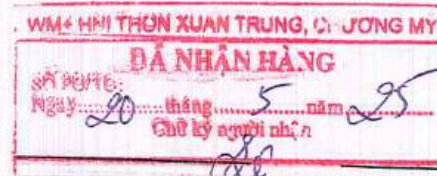 WM+ HNI THÔN XUAN TRUNG, CHƯƠNG MY
ĐÃ NHẬN HÀNG
SỐ PO/TO:
Ngày 20 tháng 5 năm 25
Chữ ký người nhận